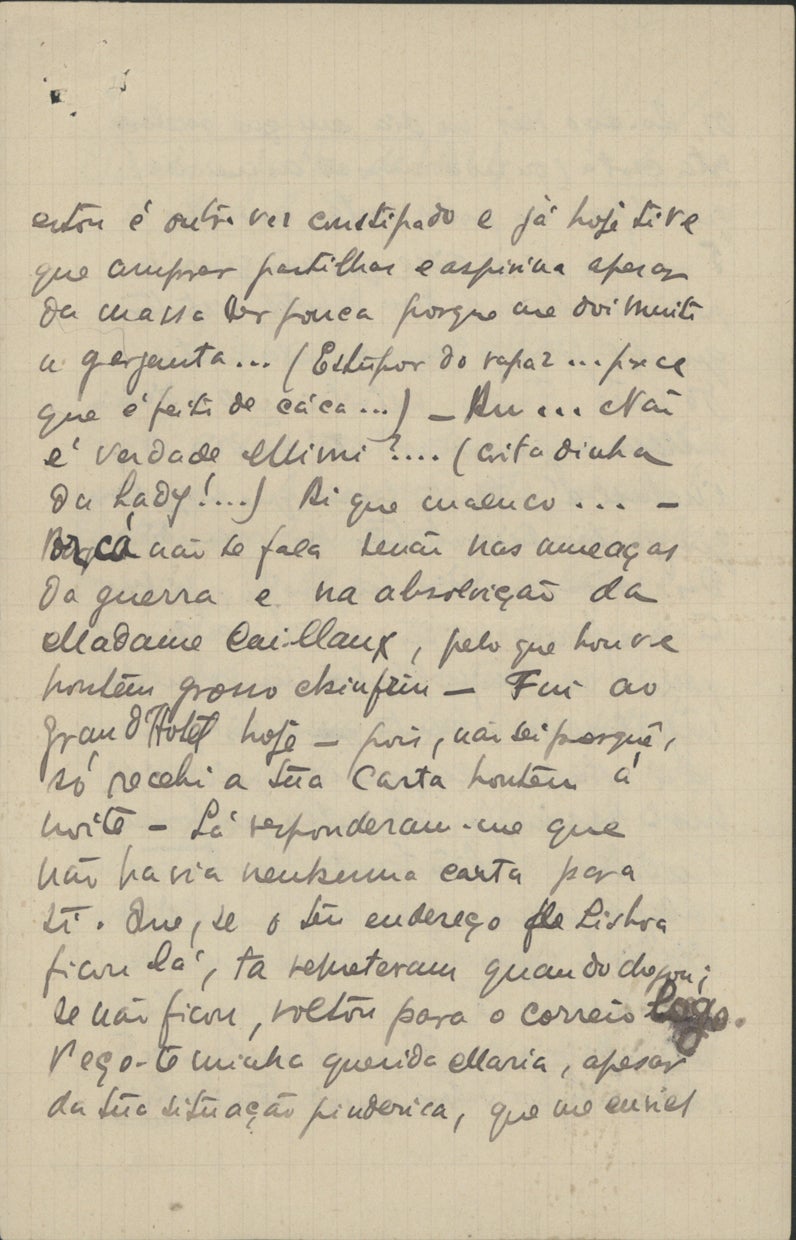 estou é outra vez constipado e já hoje tive
que comprar pastilhas e aspirina apesar
da massa ser pouca porque me doi muito
a garganta... (Estupor do rapaz... parece
que é feito de cáca...) — Au... Não
é verdade Mimi?.... (coitadinha
da Lady!...) Ai que maluco... —
Por cá não se fala senão nas ameaças
da guerra e na absolvição da
Madame Caillaux, pelo que houve
hontem grosso chinfrin — Fui ao
Grand Hotel hoje — pois, não sei porquê,
só recebi a tua carta hontem á
noite — Lá responderam-me que
não havia nenhuma carta para
ti. Que, se o teu endereço de Lisboa
ficou lá, ta remeteram quando chegou;
se não ficou, voltou para o correio logo.
Peço-te minha querida Maria, apesar
da tua situação pinderica, que me envies